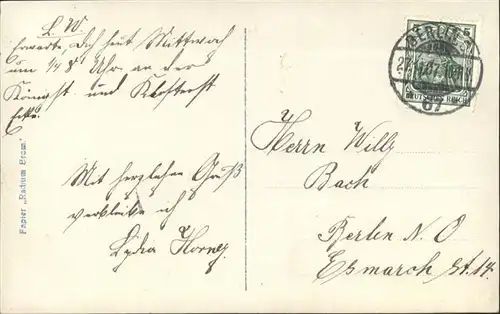 L. W.
Erwarte Dich heut Mittwoch
um 1/4 8 Uhr an der
Königst. und Klosterst
Ecke.
Mit herzlichen Gruß
verbleibe ich
Lydia
Papier „Radium Brom“
BERLIN
27.
67
5
DEUTSCHES REICH
Herrn Willy
Bach
Berlin N. O
Esmarch St. 14.